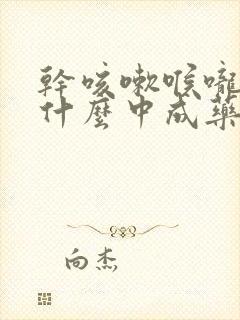 幹咳嗽喉嚨
什麼中成藥
向杰